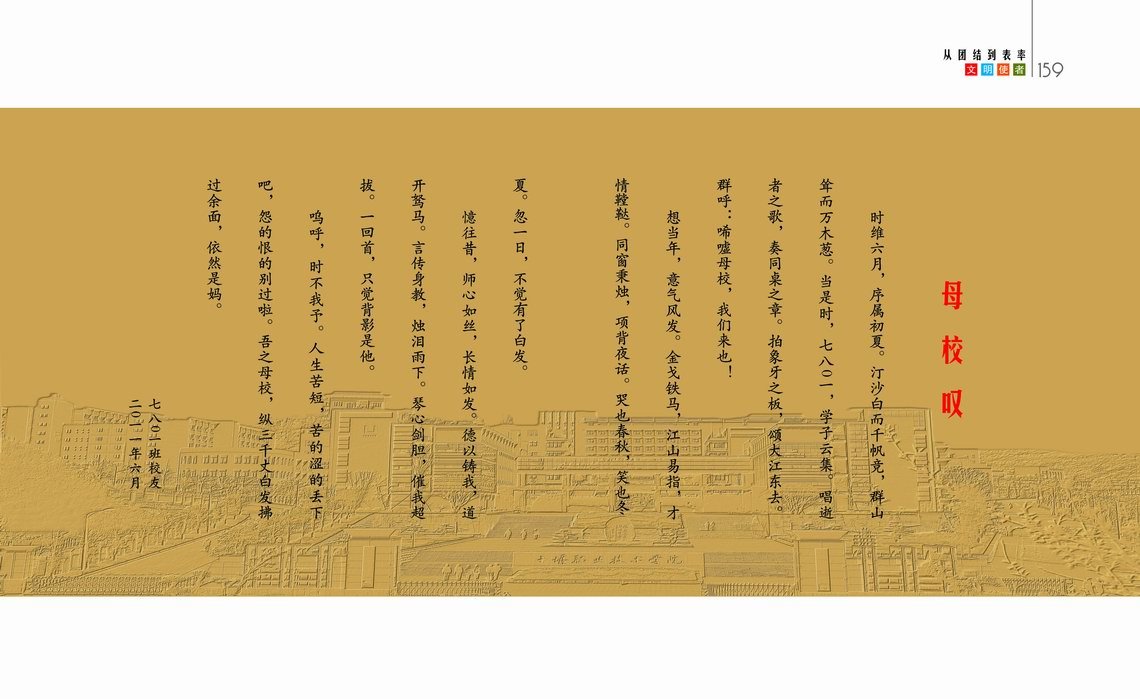 从团结到表率
文明使者
159
母校叹
时维六月，序属初夏。汀沙白而千帆竞，群山
耸而万木葱。当是时，七八〇一，学子云集。唱逝
者之歌，奏同桌之章。拍象牙之板，颂大江东去。
群呼：唏嘘母校，我们来也！
想当年，意气风发。金戈铁马，江山易指，才
情鞺鞑。同窗秉烛，项背夜话。哭也春秋，笑也冬
夏。忽一日，不觉有了白发。
憶往昔，师心如丝，长情如发。德以铸我，道
开驽马。言传身教，烛泪雨下。琴心剑胆，催我超
拔。一回首，只觉背影是他。
呜呼，时不我予。人生苦短，苦的涩的丢下
吧，怨的恨的别过啦。吾之母校，纵三千丈白发拂
过余面，依然是妈。
七八〇一班校友
二〇一一年六月
十堰职业技术学院